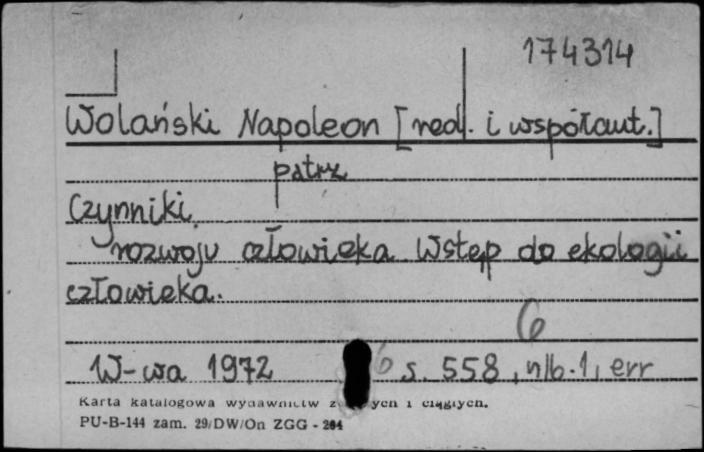 174314
Wolański Napoleon [red. i współaut.]
patrz
Czynniki
rozwoju człowieka. Wstęp do ekologii
człowieka.
6
W-wa 1972 6 s. 558, nlb. 1, err
Karta katalogowa wydawnictw z ych i ciągłych.
PU-B-144 zam. 29/DW/On ZGG - 264